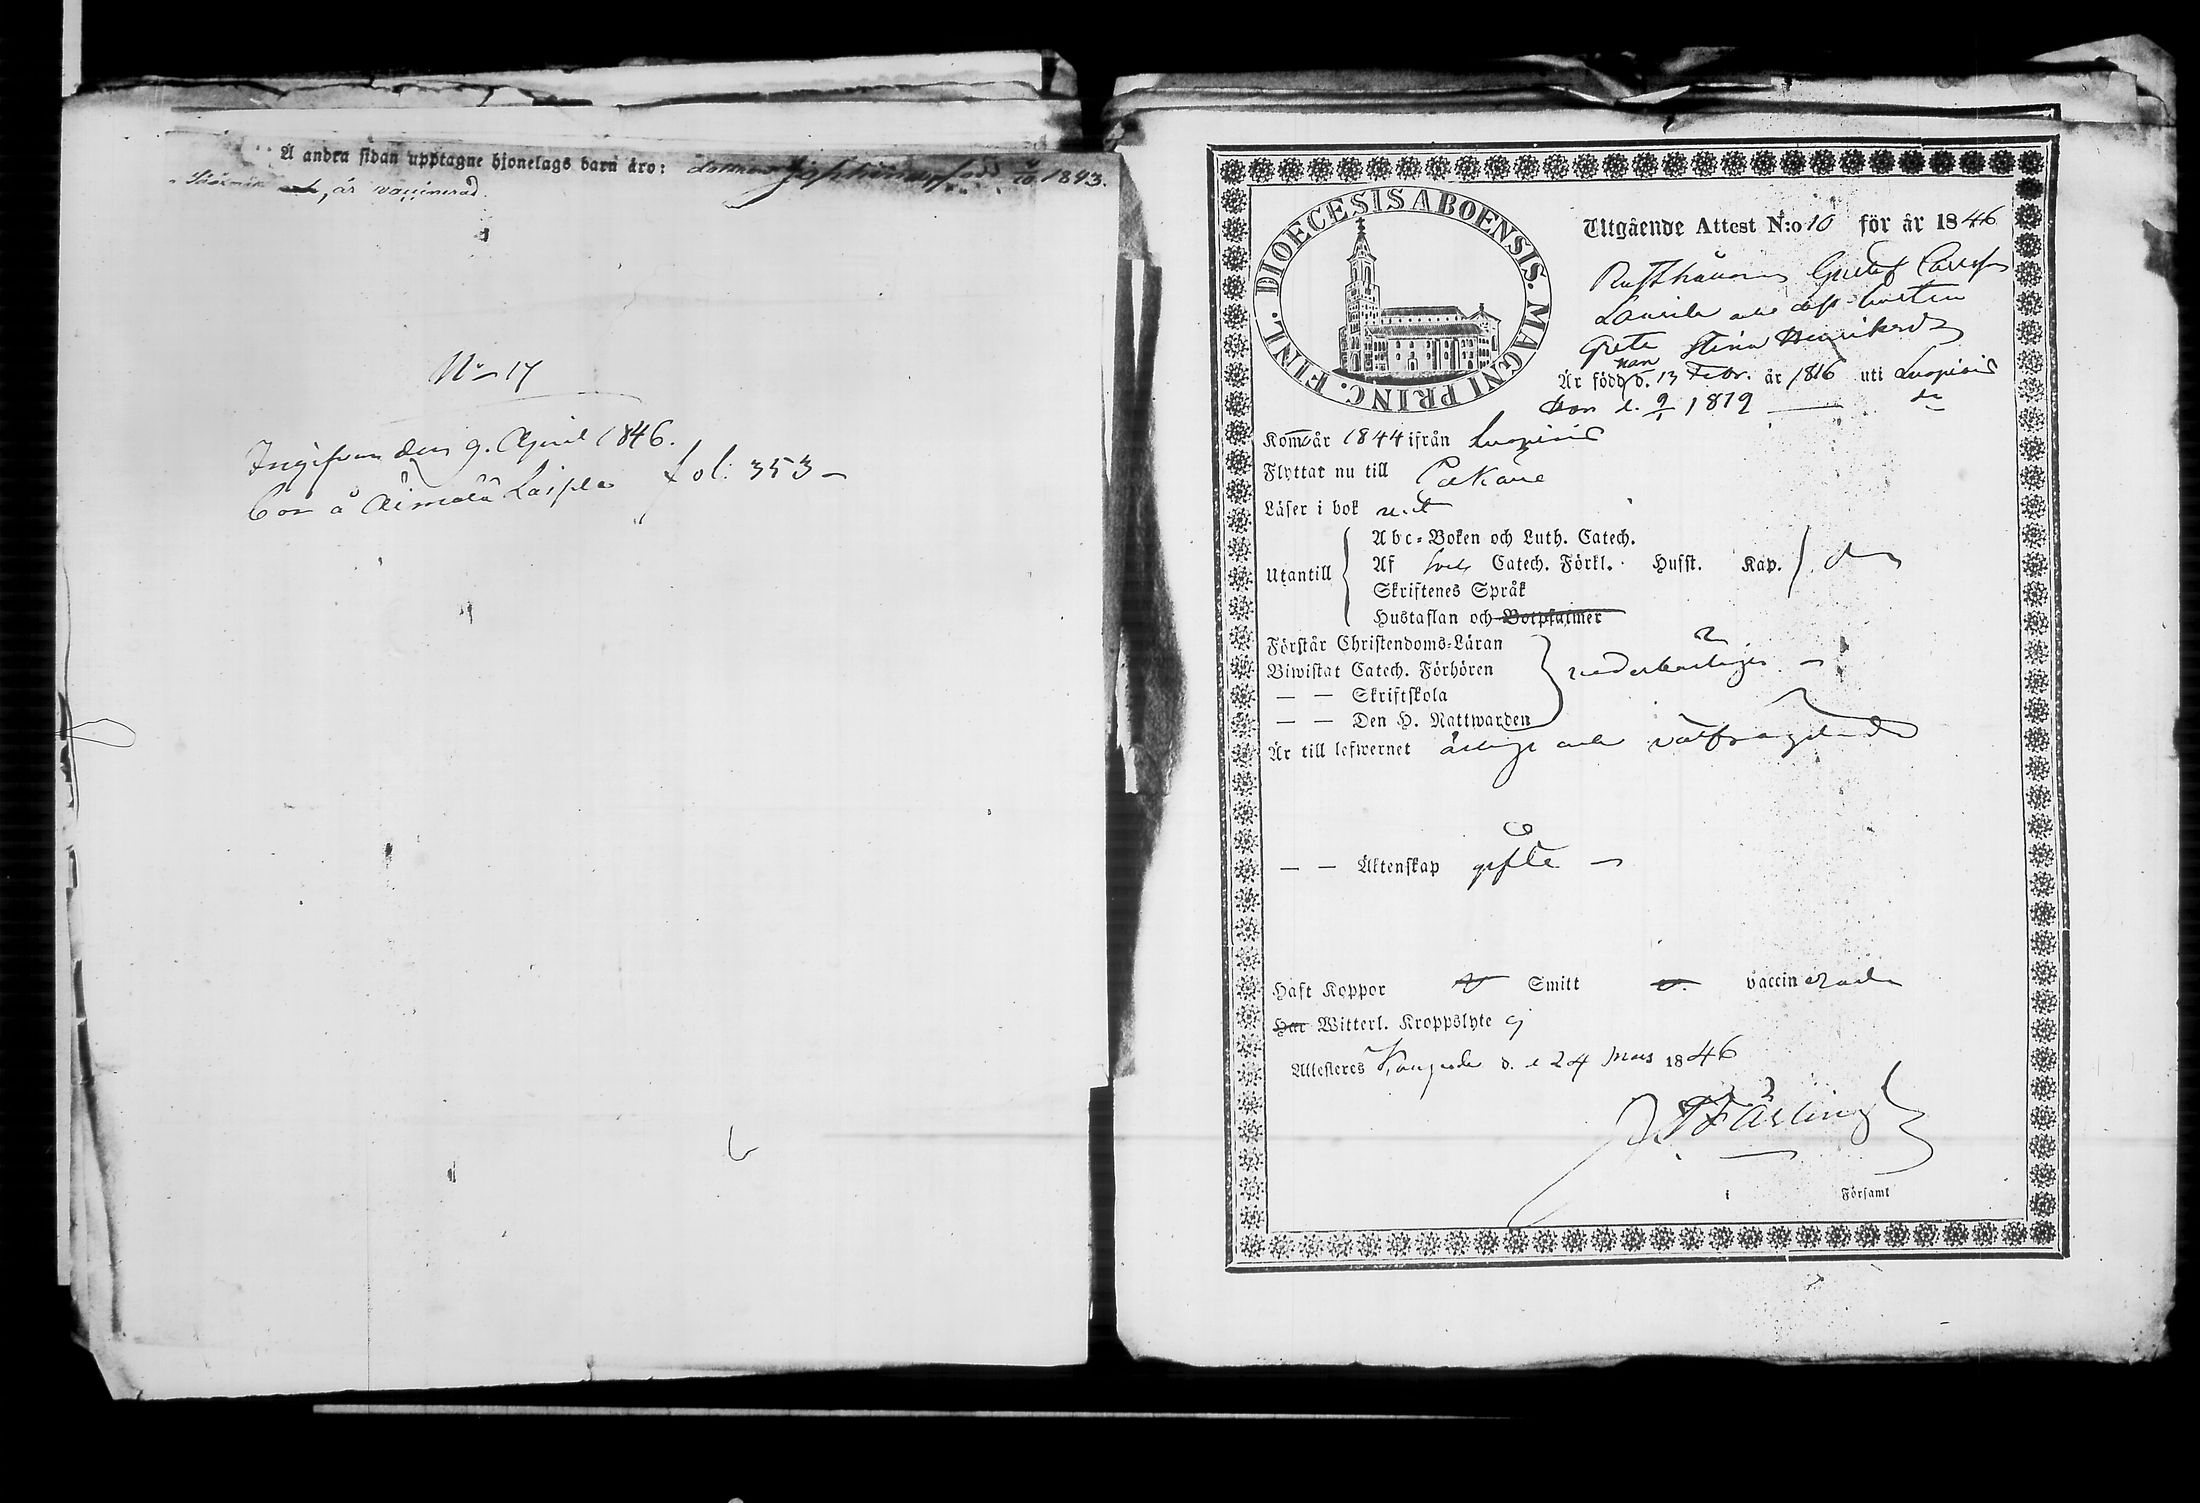 Å andra sidan upptagne hjonelags barn äro: dottren född 1843.
är vaccinerad.
No 17
Ingifven den 9. April 1846.
Bor å Äimälä Laipla fol: 353 –
DIOECESIS ABOENSIS. MAGNI PRINC. FINL.
Utgående Attest N:o 10 för år 1846
Rusthållaren Gustaf
Laurila och dess hustru
Greta Stina Henriksdr
Är född han d. 13 Febr. år 1816 uti Luopiois
Hon d. 9/1 1819 — do
Kom år 1844 ifrån Luopiois
Flyttar nu till Pelkäne
Läser i bok
Utantill
Abc-Boken och Luth. Catech.
Af Sveb. Catech. Förkl. Husst. Kap.
Skriftenes Språk
Hustaflan och Botpsalmer
Förstår Christendoms-Läran
Biwistat Catech. Förhören
— — Skriftskola
— — Den H. Nattwarden
Är till lefwernet ärliga och välfrägdade
— — Äktenskap gifte —
Haft Koppor Smitt vaccinerade
Har Witterl. Kroppslyte ej
Attesteres Kangasala d. 24 Mars 1846
i Församl